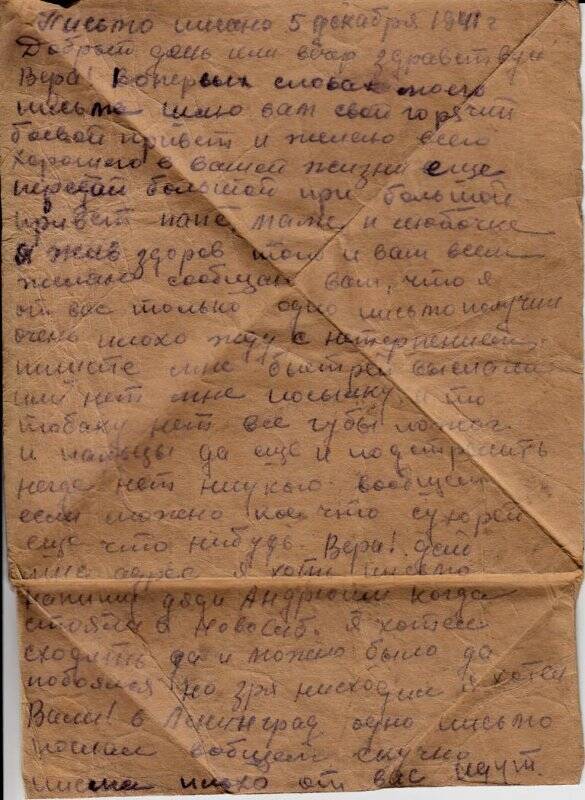 Письмо писано 5 декабря 1941 г
Добрый день или вечер здравствуй
Вера! Вопервых словах моего
письма шлю вам свой горячий
боевой привет и желаю всего
хорошего в вашей жизни еще
передай большой при большой
привет папе, маме и Любочке
я жив здоров того и вам всем
желаю сообщаю вам, что я
от вас только одно письмо получил
очень плохо жду с нетерпением
пишите мне быстрей выслали
или нет мне посылку, а то
табаку нет все губы пожог
и пальцы да еще и подстрелить
негде нет ни укого вообщем
если можно кое что сухарей
еще что нибудь. Вера! дай
мне адрес я хоть письмо
напишу дяди Андрюши когда
стояли в Новосиб. я хотел
сходить да и можно было да
побоялся но зря несходил я хотел
Вали! в Ленинград одно письмо
послал вобщем скучно
письма плохо от вас идут.